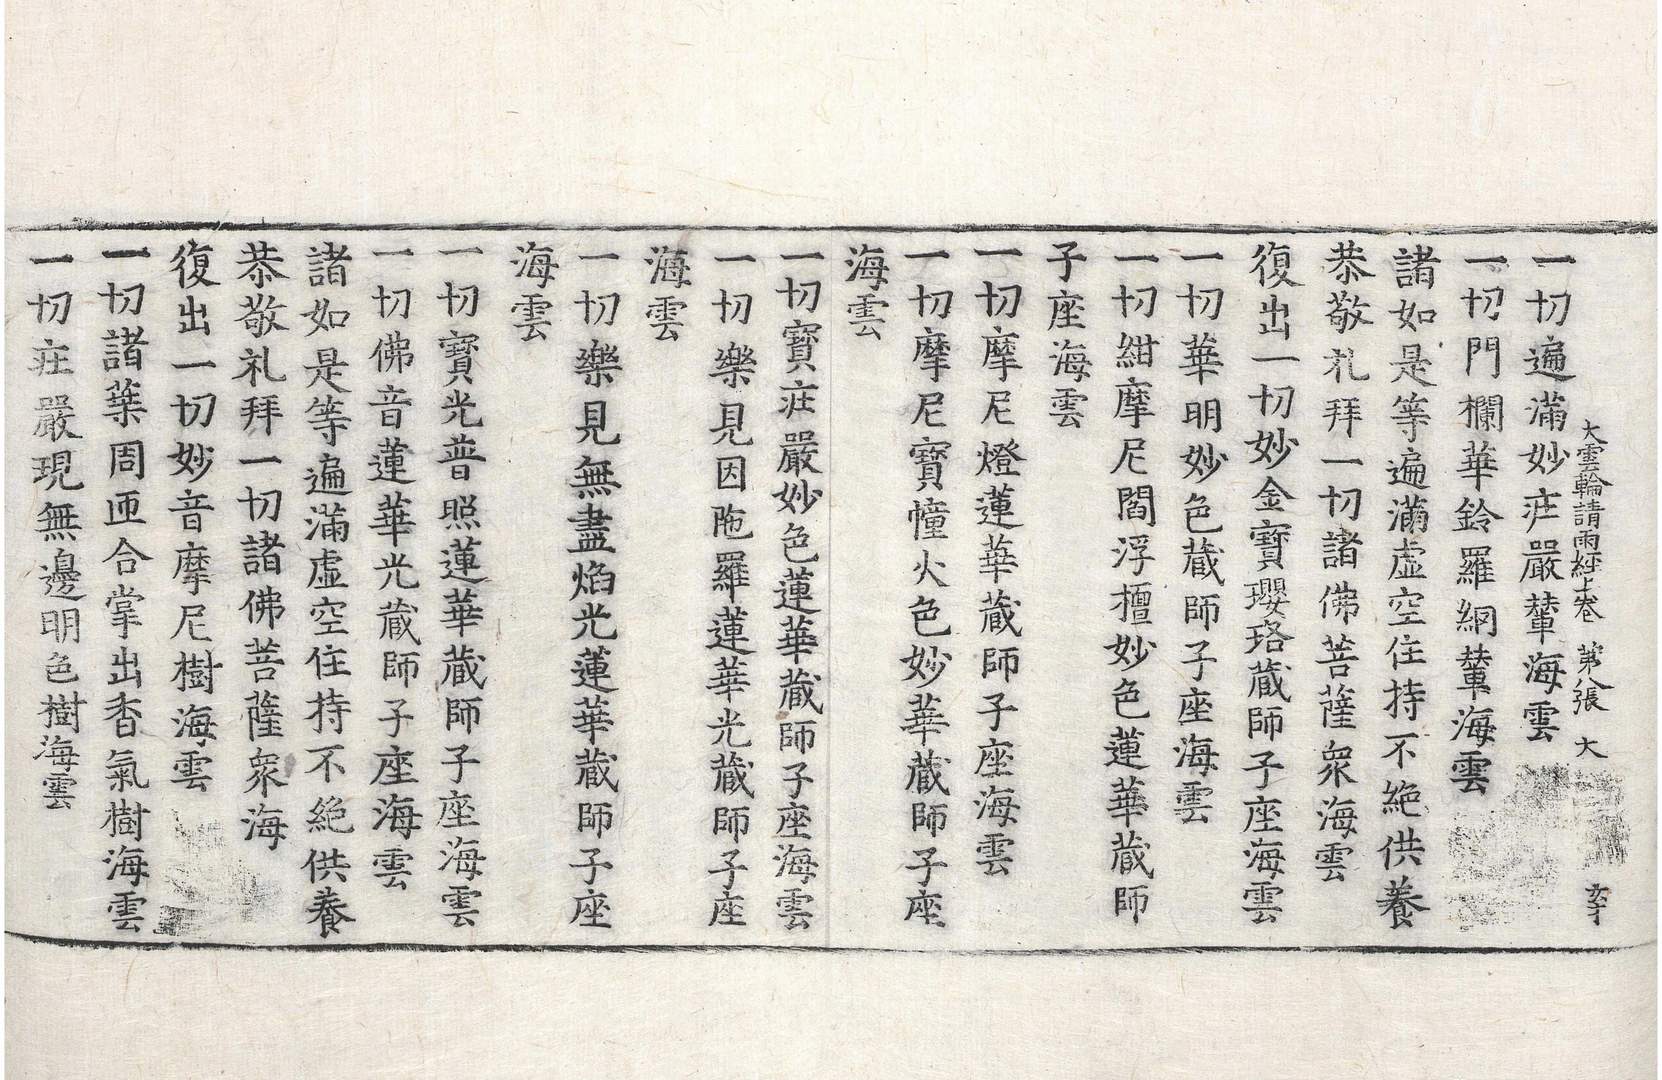 大雲輪請雨經上卷　第八張　大
一切遍滿妙庄嚴輦海雲
一切門欄華鈴羅網輦海雲
諸如是等遍滿虛空住持不絶供養
恭敬礼拜一切諸佛菩薩衆海雲
復出一切妙金寶瓔珞藏師子座海雲
一切華明妙色藏師子座海雲
一切紺摩尼閻浮檀妙色蓮華藏師
子座海雲
一切摩尼燈蓮華藏師子座海雲
一切摩尼寶幢火色妙華藏師子座
海雲
一切寶庄嚴妙色蓮華藏師子座海雲
一切樂見因陁羅蓮華光藏師子座
海雲
一切樂見無盡焰光蓮華藏師子座
海雲
一切寶光普照蓮華藏師子座海雲
一切佛音蓮華光藏師子座海雲
諸如是等遍滿虛空住持不絶供養
恭敬礼拜一切諸佛菩薩衆海
復出一切妙音摩尼樹海雲
一切諸葉周匝合掌出香氣樹海雲
一切庄嚴現無邊明色樹海雲